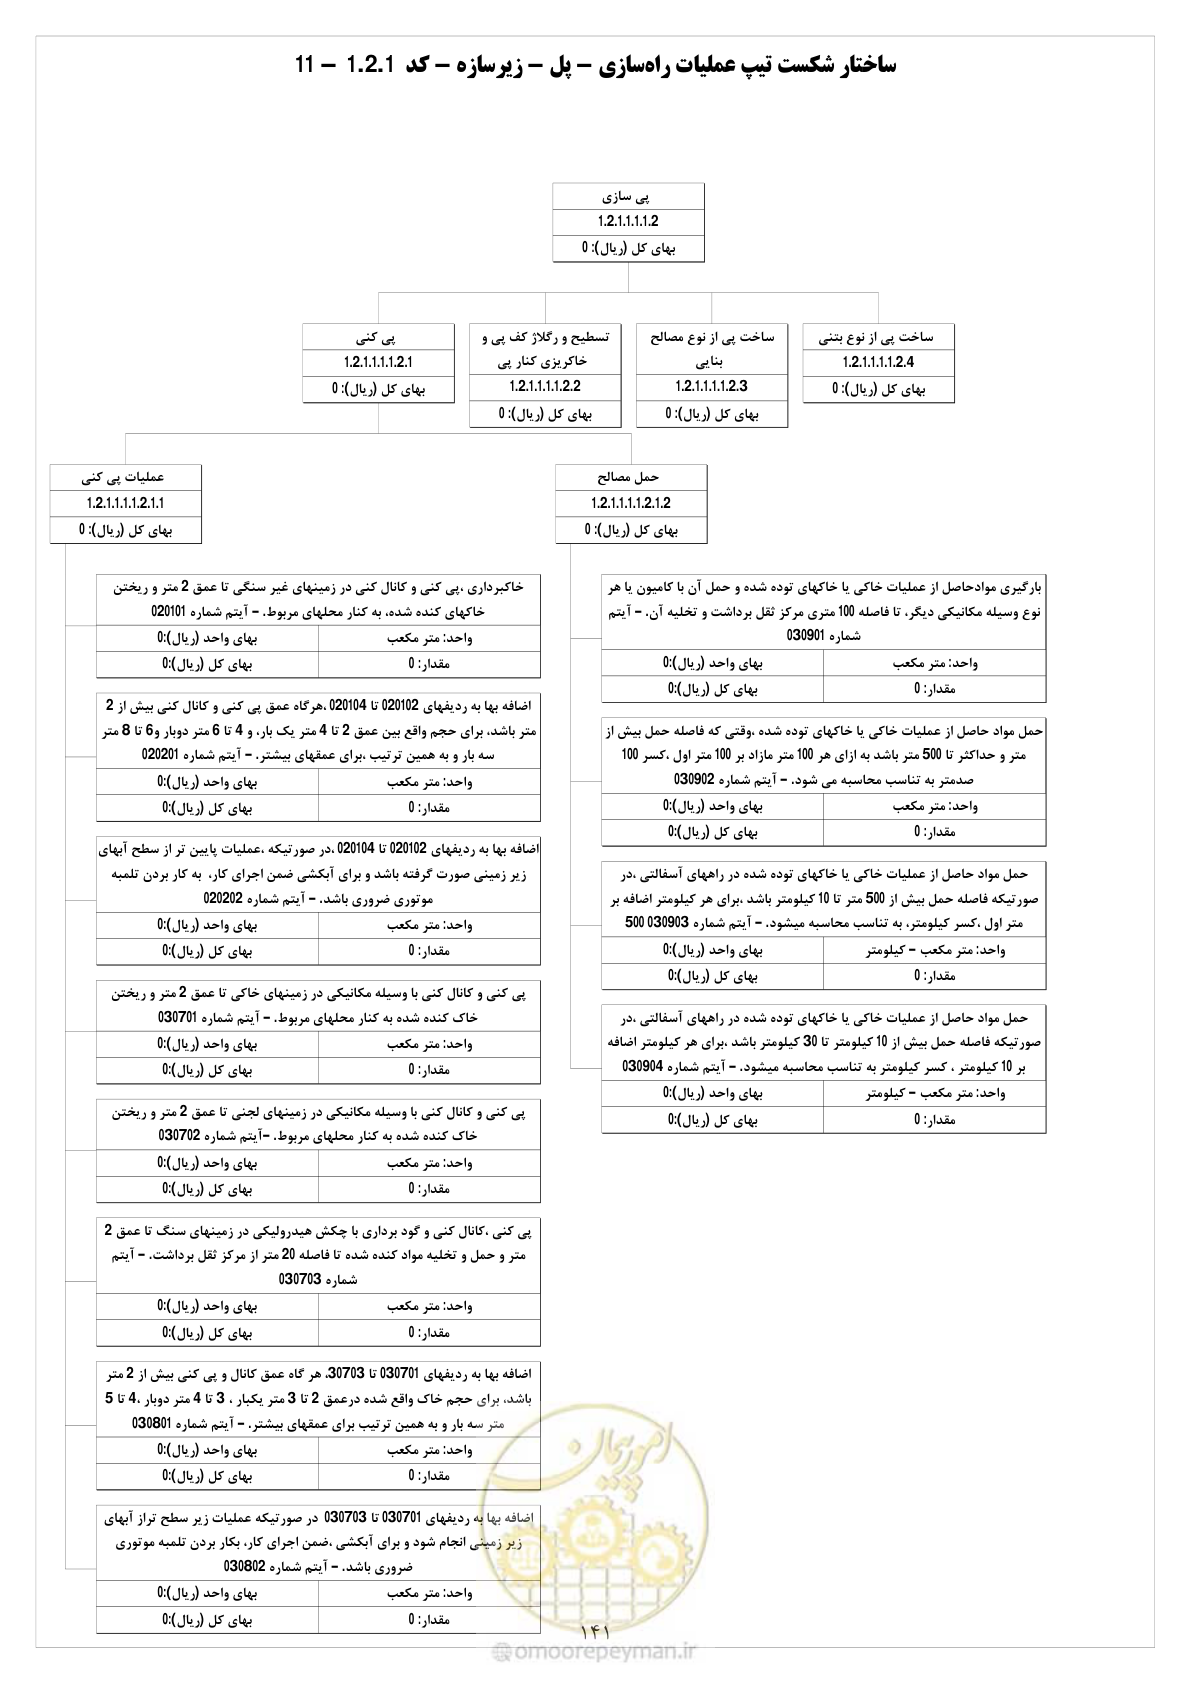 ساختار شکست تیپ عملیات راه‌سازی – پل – زیرسازه – کد 1.2.1 – 11
پی سازی
1.2.1.1.1.1.2
بهای کل (ریال): 0
پی کنی
1.2.1.1.1.1.2.1
بهای کل (ریال): 0
تسطیح و رگلاژ کف پی و
خاکریزی کنار پی
1.2.1.1.1.1.2.2
بهای کل (ریال): 0
ساخت پی از نوع مصالح
بنایی
1.2.1.1.1.1.2.3
بهای کل (ریال): 0
ساخت پی از نوع بتنی
1.2.1.1.1.1.2.4
بهای کل (ریال): 0
عملیات پی کنی
1.2.1.1.1.1.2.1.1
بهای کل (ریال): 0
خاکبرداری ،پی کنی و کانال کنی در زمینهای غیر سنگی تا عمق 2 متر و ریختن
خاکهای کنده شده، به کنار محلهای مربوط. – آیتم شماره 020101
واحد: متر مکعب
بهای واحد (ریال):0
مقدار: 0
بهای کل (ریال):0
اضافه بها به ردیفهای 020102 تا 020104 ،هرگاه عمق پی کنی و کانال کنی بیش از 2
متر باشد، برای حجم واقع بین عمق 2 تا 4 متر یک بار، و 4 تا 6 متر دوبار و6 تا 8 متر
سه بار و به همین ترتیب ،برای عمقهای بیشتر. – آیتم شماره 020201
واحد: متر مکعب
بهای واحد (ریال):0
مقدار: 0
بهای کل (ریال):0
اضافه بها به ردیفهای 020102 تا 020104 ،در صورتیکه ،عملیات پایین تر از سطح آبهای
زیر زمینی صورت گرفته باشد و برای آبکشی ضمن اجرای کار، به کار بردن تلمبه
موتوری ضروری باشد. – آیتم شماره 020202
واحد: متر مکعب
بهای واحد (ریال):0
مقدار: 0
بهای کل (ریال):0
پی کنی و کانال کنی با وسیله مکانیکی در زمینهای خاکی تا عمق 2 متر و ریختن
خاک کنده شده به کنار محلهای مربوط. – آیتم شماره 030701
واحد: متر مکعب
بهای واحد (ریال):0
مقدار: 0
بهای کل (ریال):0
پی کنی و کانال کنی با وسیله مکانیکی در زمینهای لجنی تا عمق 2 متر و ریختن
خاک کنده شده به کنار محلهای مربوط. –آیتم شماره 030702
واحد: متر مکعب
بهای واحد (ریال):0
مقدار: 0
بهای کل (ریال):0
پی کنی ،کانال کنی و گود برداری با چکش هیدرولیکی در زمینهای سنگ تا عمق 2
متر و حمل و تخلیه مواد کنده شده تا فاصله 20 متر از مرکز ثقل برداشت. – آیتم
شماره 030703
واحد: متر مکعب
بهای واحد (ریال):0
مقدار: 0
بهای کل (ریال):0
اضافه بها به ردیفهای 030701 تا 30703، هر گاه عمق کانال و پی کنی بیش از 2 متر
باشد، برای حجم خاک واقع شده درعمق 2 تا 3 متر یکبار ، 3 تا 4 متر دوبار ،4 تا 5
متر سه بار و به همین ترتیب برای عمقهای بیشتر. – آیتم شماره 030801
واحد: متر مکعب
بهای واحد (ریال):0
مقدار: 0
بهای کل (ریال):0
اضافه بها به ردیفهای 030701 تا 030703 در صورتیکه عملیات زیر سطح تراز آبهای
زیر زمینی انجام شود و برای آبکشی ،ضمن اجرای کار، بکار بردن تلمبه موتوری
ضروری باشد. – آیتم شماره 030802
واحد: متر مکعب
بهای واحد (ریال):0
مقدار: 0
بهای کل (ریال):0
حمل مصالح
1.2.1.1.1.1.2.1.2
بهای کل (ریال): 0
بارگیری موادحاصل از عملیات خاکی یا خاکهای توده شده و حمل آن با کامیون یا هر
نوع وسیله مکانیکی دیگر، تا فاصله 100 متری مرکز ثقل برداشت و تخلیه آن. – آیتم
شماره 030901
واحد: متر مکعب
بهای واحد (ریال):0
مقدار: 0
بهای کل (ریال):0
حمل مواد حاصل از عملیات خاکی یا خاکهای توده شده ،وقتی که فاصله حمل بیش از
متر و حداکثر تا 500 متر باشد به ازای هر 100 متر مازاد بر 100 متر اول ،کسر 100
صدمتر به تناسب محاسبه می شود. – آیتم شماره 030902
واحد: متر مکعب
بهای واحد (ریال):0
مقدار: 0
بهای کل (ریال):0
حمل مواد حاصل از عملیات خاکی یا خاکهای توده شده در راههای آسفالتی ،در
صورتیکه فاصله حمل بیش از 500 متر تا 10 کیلومتر باشد ،برای هر کیلومتر اضافه بر
متر اول ،کسر کیلومتر، به تناسب محاسبه میشود. – آیتم شماره 030903 500
واحد: متر مکعب – کیلومتر
بهای واحد (ریال):0
مقدار: 0
بهای کل (ریال):0
حمل مواد حاصل از عملیات خاکی یا خاکهای توده شده در راههای آسفالتی ،در
صورتیکه فاصله حمل بیش از 10 کیلومتر تا 30 کیلومتر باشد ،برای هر کیلومتر اضافه
بر 10 کیلومتر ، کسر کیلومتر به تناسب محاسبه میشود. – آیتم شماره 030904
واحد: متر مکعب – کیلومتر
بهای واحد (ریال):0
مقدار: 0
بهای کل (ریال):0
امور پیمان
۱۴۱
@omoorepeyman.ir